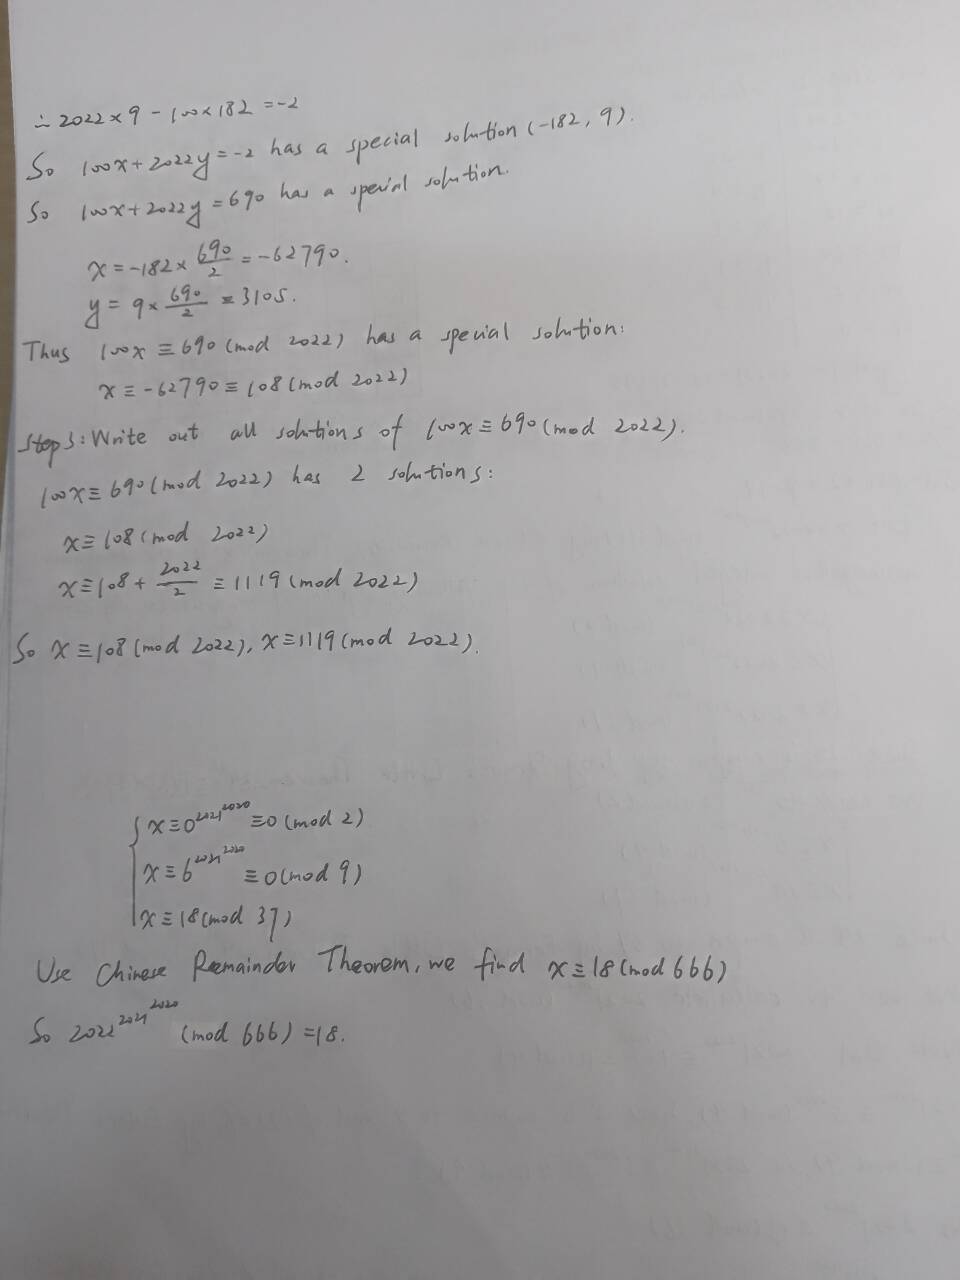 ∴ 2022 × 9 - 100 × 182 = -2
So 100x + 2022y = -2 has a special solution (-182, 9).
So 100x + 2022y = 690 has a special solution.
x = -182 × 690/2 = -62790.
y = 9 × 690/2 = 3105.
Thus 100x ≡ 690 (mod 2022) has a special solution:
x ≡ -62790 ≡ 108 (mod 2022)
Step 3: Write out all solutions of 100x ≡ 690 (mod 2022).
100x ≡ 690 (mod 2022) has 2 solutions:
x ≡ 108 (mod 2022)
x ≡ 108 + 2022/2 ≡ 1119 (mod 2022)
So x ≡ 108 (mod 2022), x ≡ 1119 (mod 2022).
x ≡ 0^2021^2020 ≡ 0 (mod 2)
x ≡ 6^2021^2020 ≡ 0 (mod 9)
x ≡ 18 (mod 37)
Use Chinese Remainder Theorem, we find x ≡ 18 (mod 666)
So 2022^2021^2020 (mod 666) = 18.